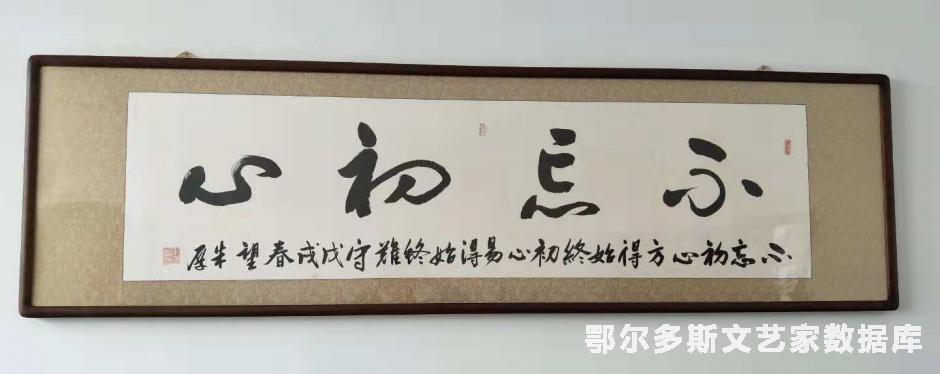 不忘初心
不忘初心方得始终初心易得始终难守戊戌春望朱厚
鄂尔多斯文艺家数据库